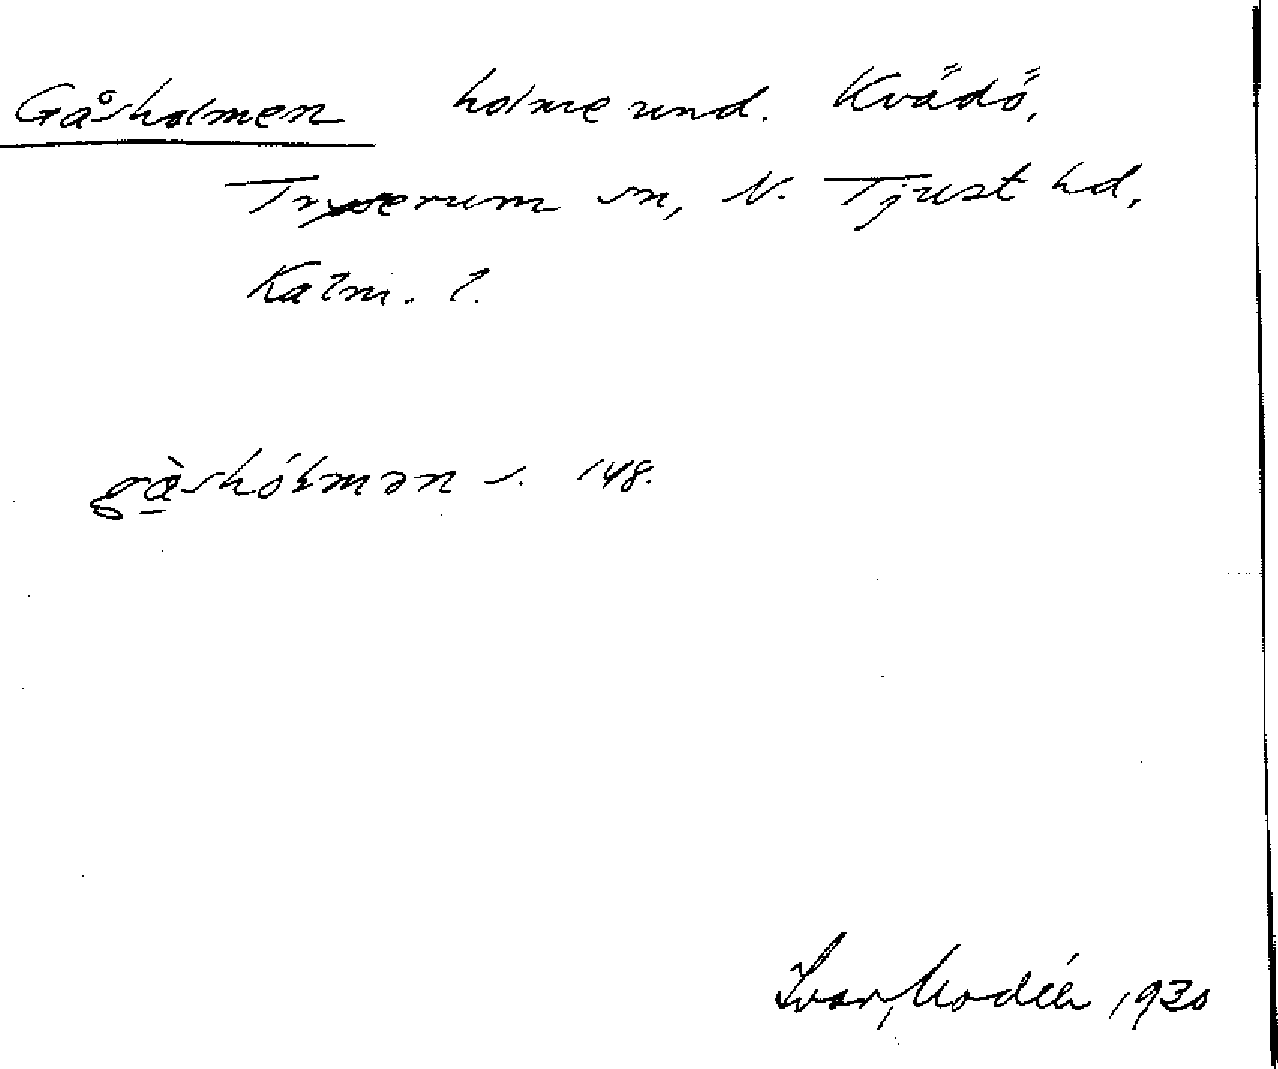 Gåsholmen holme und. Kvädö,
Tryserum sn, N. Tjust hd,
Kalm. l.
gàshólmən s. 148.
Ivar Modéer 1930